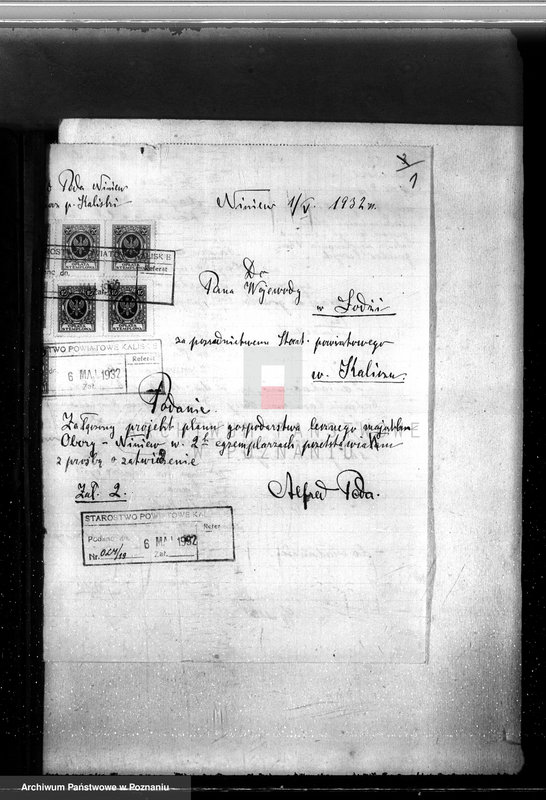 1
Poda Niniew
p. Kaliski
Niniew 1/V. 1932 r.
Do
Pana Wojewody
w Łodzi
za pośrednictwem Starost. powiatowego
w. Kaliszu.
STAROSTWO POWIATOWE KALISKIE
Referat
STWO POWIATOWE KALIS
Referat
6 MAJ 1932
Zał.
Podanie.
Załączony projekt planu gospodarstwa leśnego majątku
Obory - Niniew w. 2ch egzemplarzach przedstawiam
z prośbą o zatwierdzenie
Zał. 2.
Alfred Poda.
STAROSTWO POWIATOWE KAL
Podano dn.
6 MAJ 1932
Refer
Nr.
Zał.
Archiwum Państwowe w Poznaniu